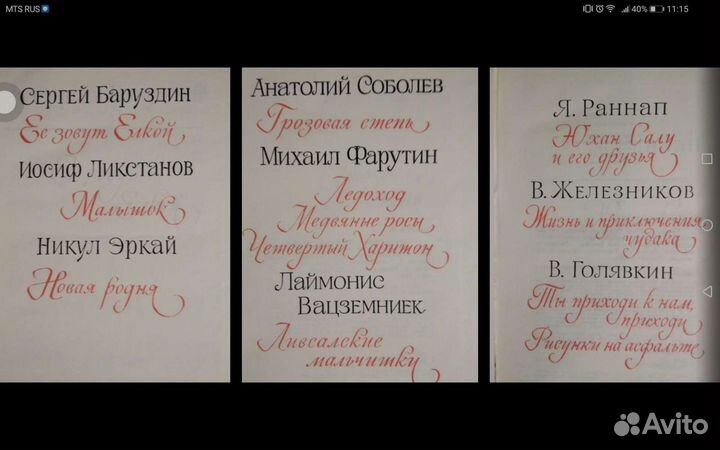 MTS RUS
40% 11:15
Сергей Баруздин
Ее зовут Елкой
Иосиф Ликстанов
Малышок
Никул Эркай
Новая родня
Анатолий Соболев
Грозовая степь
Михаил Фарутин
Ледоход
Медвяные росы
Четвертый Харитон
Лаймонис
Вацземниек
Ливсалские
мальчишки
Я. Раннап
Юхан Салу
и его друзья
В. Железников
Жизнь и приключения
чудака
В. Голявкин
Ты приходи к нам,
приходи
Рисунки на асфальте
Avito